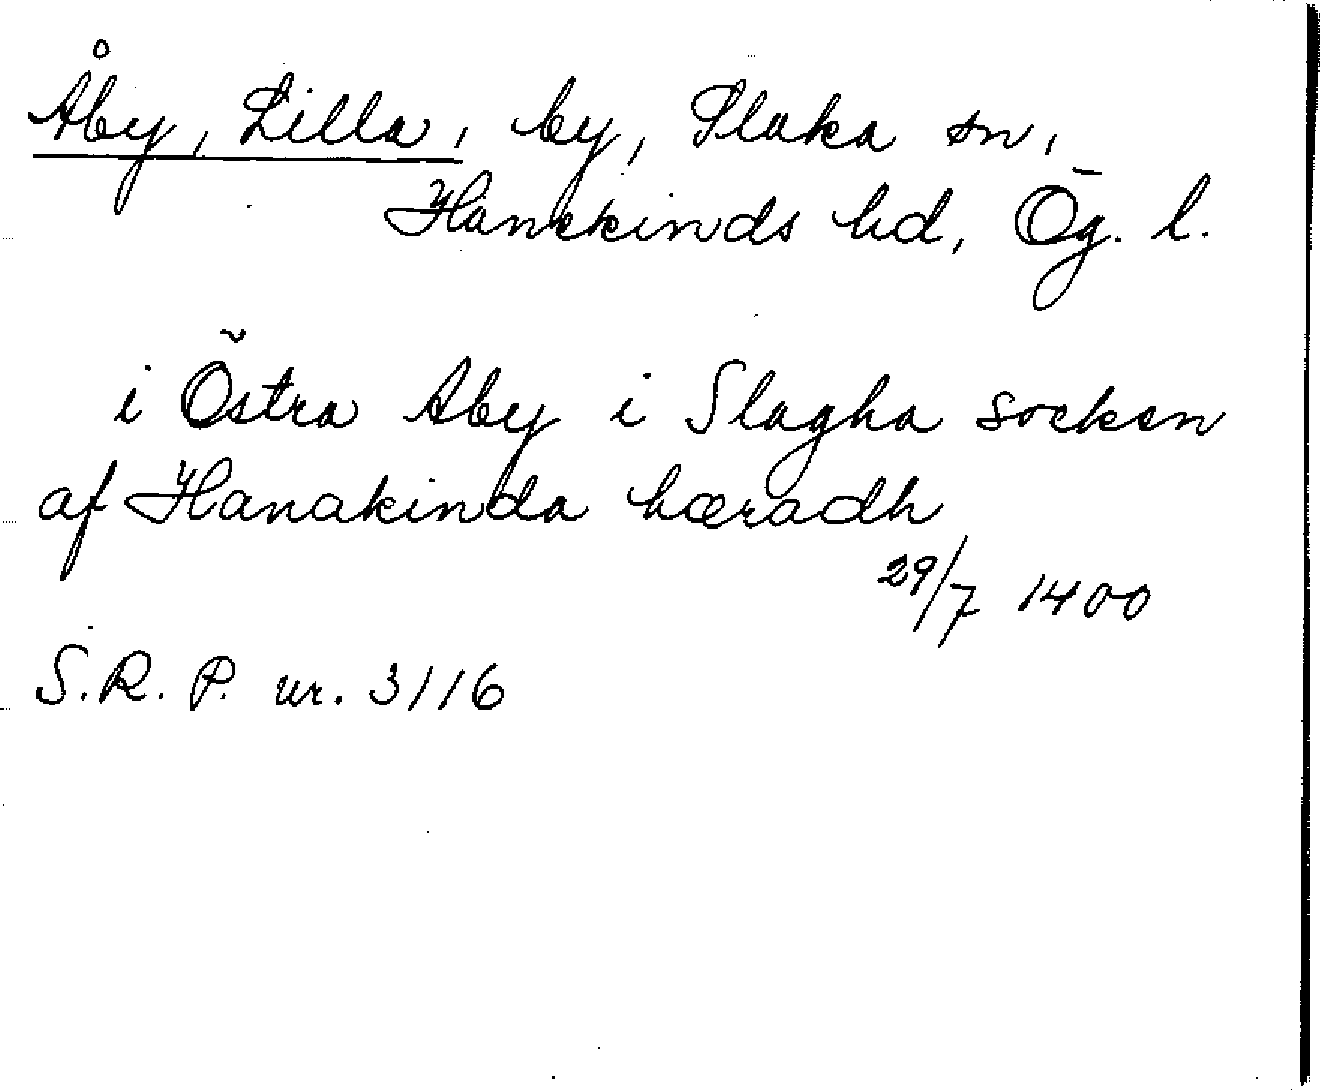 Åby, Lilla, by, Slaka sn,
Hanekinds hd, Ög. l.
i Östra Aby i Slagha socken
af Hanakinda hæradh
29/7 1400
S.R.P. nr. 3116